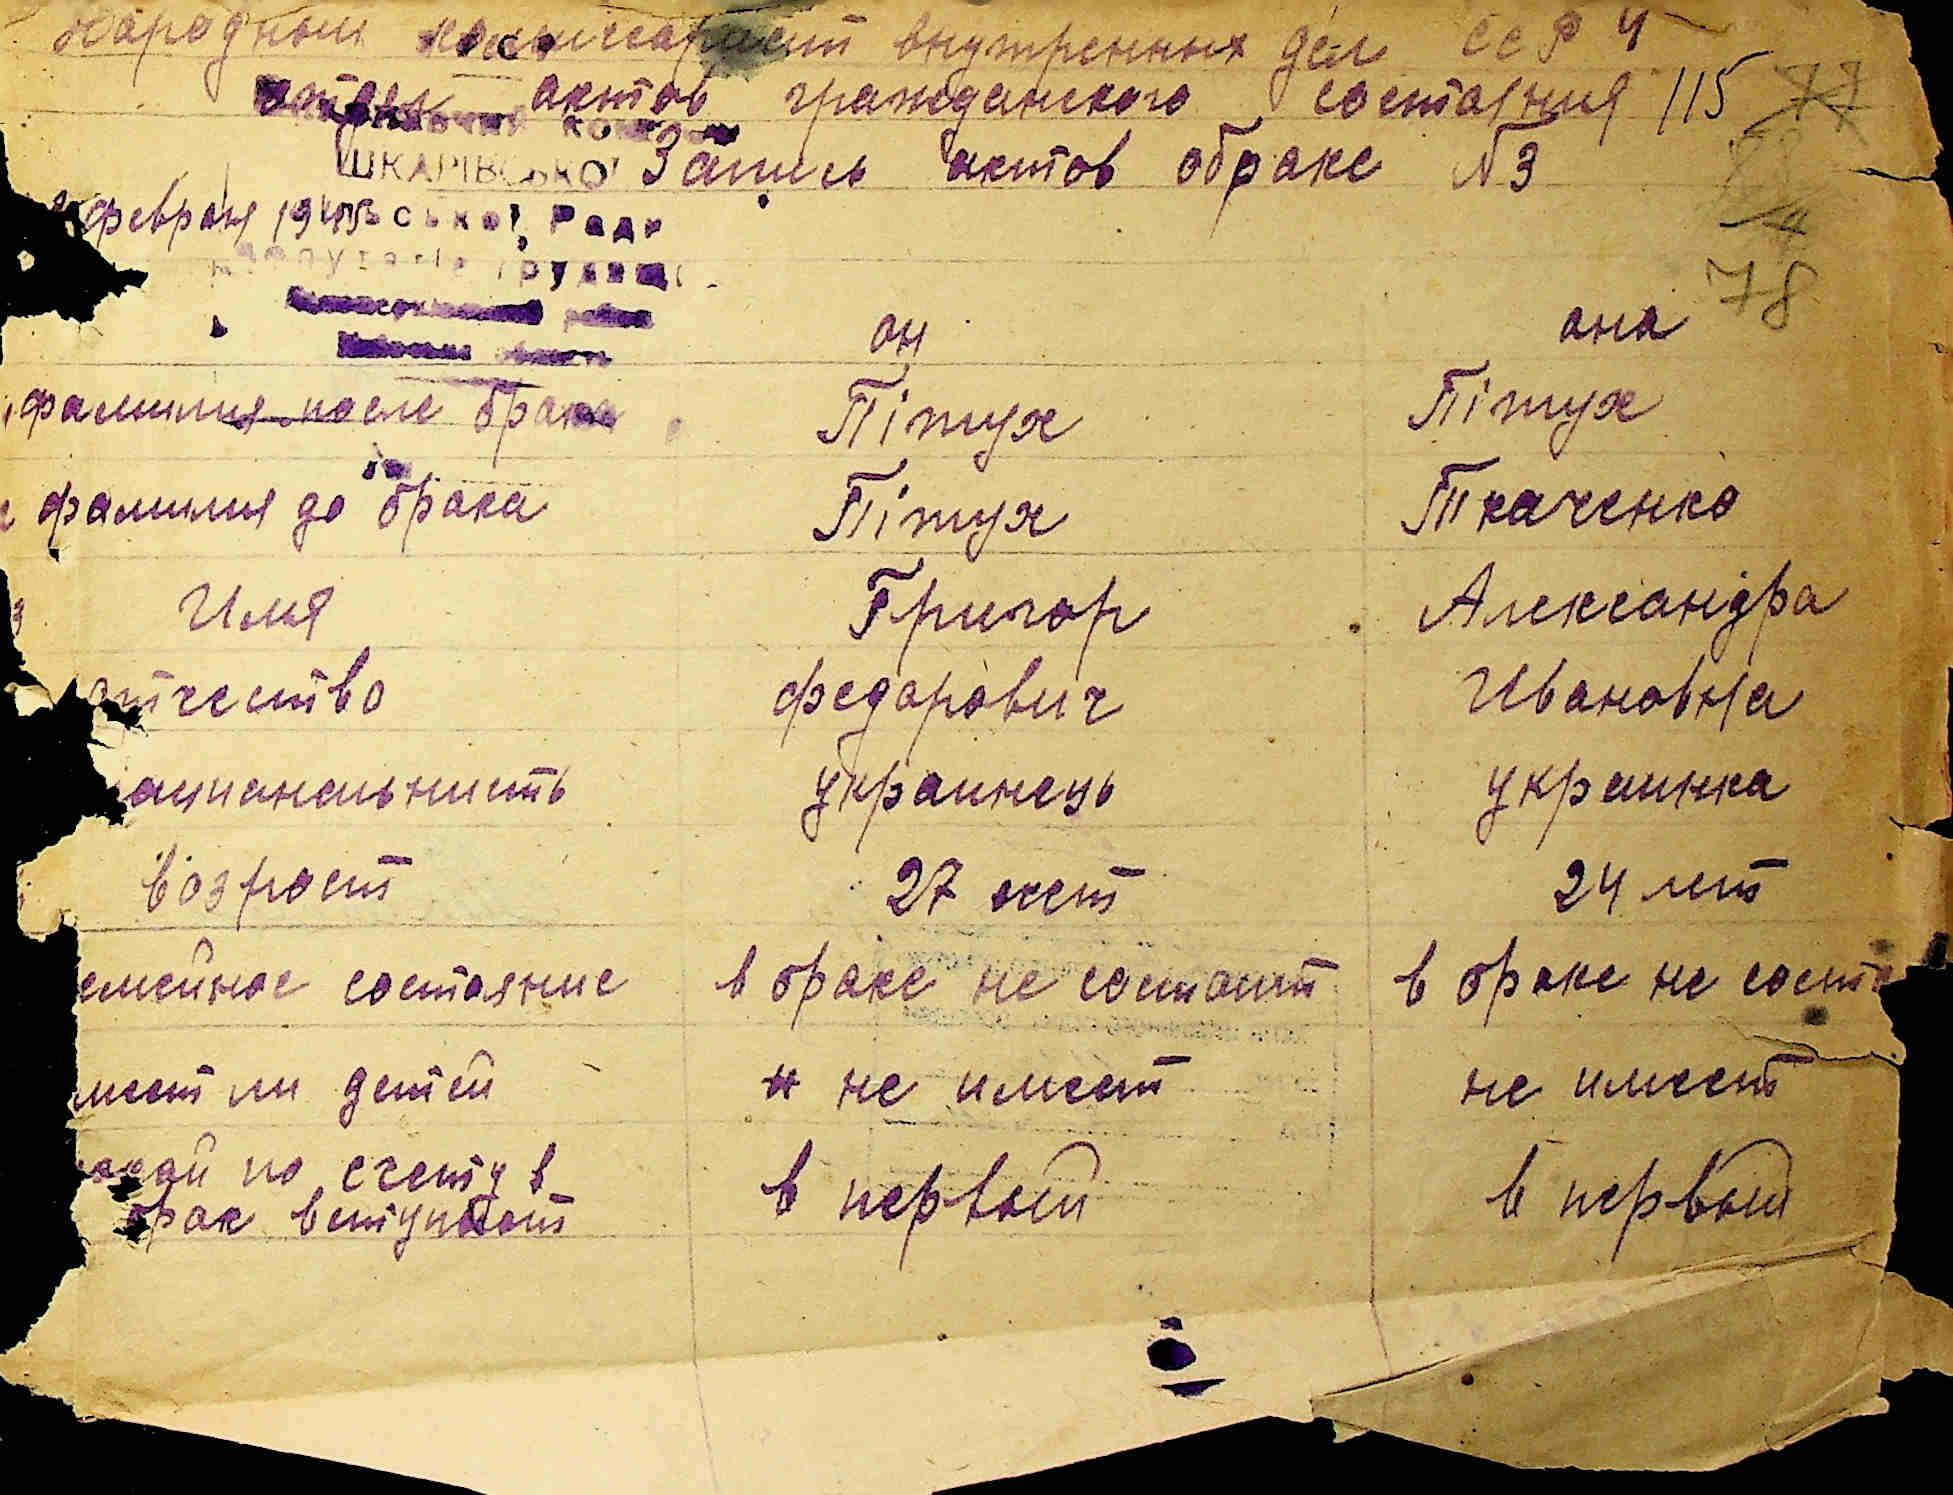 Народный комиссариат внутренных дел ССР
отдел актов гражданского состояния 115 77
ШКАРІВСЬКОЇ Запись актов о браке N3
февраля 1945 ської Ради
депутатів трудящ
78
он она
фамилия после брака Пітух Пітух
фамилия до брака Пітух Ткаченко
3 Имя Григор Александра
отчество федорович Ивановна
ациональность украинець украинка
возраст 27 лет 24 лет
емейное состояние в браке не состоит в браке не состо
меет ли детей не имеет не имеет
по счету в
брак вступают в первый в первый